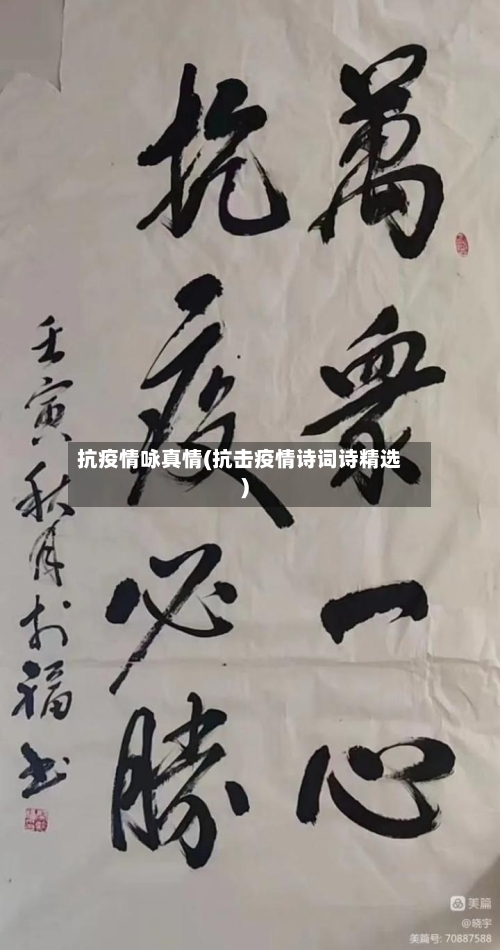 萬衆一心
抗疫必勝
壬寅秋月於福
抗疫情咏真情(抗击疫情诗词诗精选
)
美篇
@晓宇
美篇号: 70887588